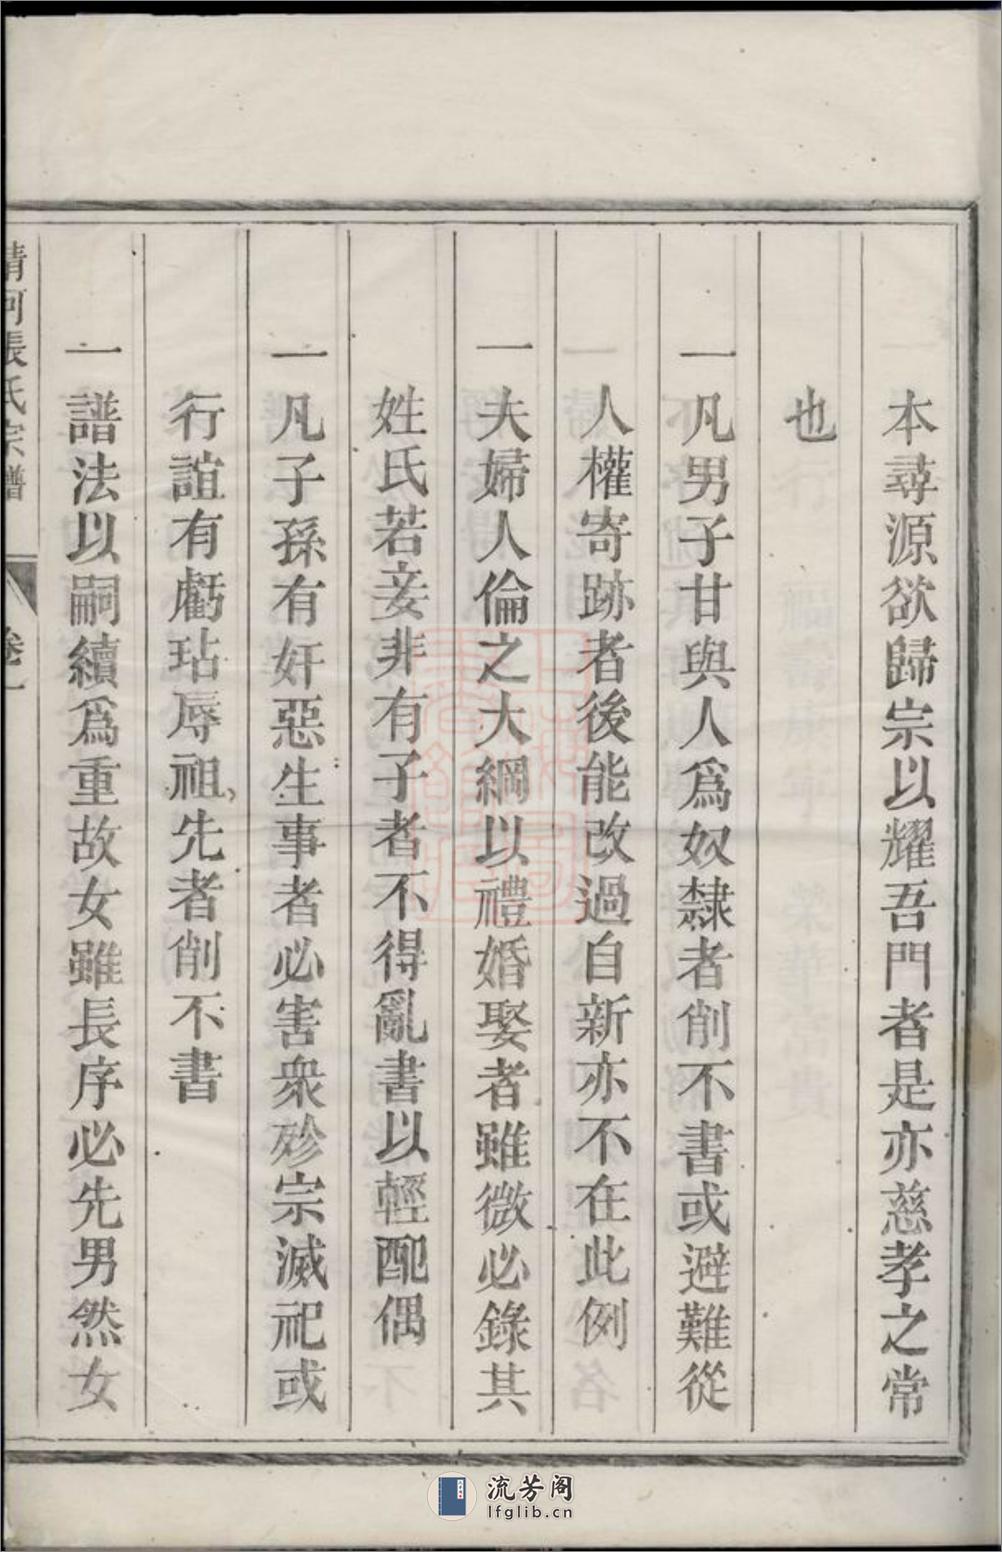 本尋源欲歸宗以耀吾門者是亦慈孝之常
也
一凡男子甘與人爲奴隸者削不書或避難從
人權寄跡者後能改過自新亦不在此例
一夫婦人倫之大綱以禮婚娶者雖微必錄其
姓氏若妾非有子者不得亂書以輕配偶
一凡子孫有奸惡生事者必害衆殄宗滅祀或
行誼有虧玷辱祖先者削不書
一譜法以嗣續爲重故女雖長序必先男然女
清河張氏宗譜 卷一
流芳阁
lfglib.cn